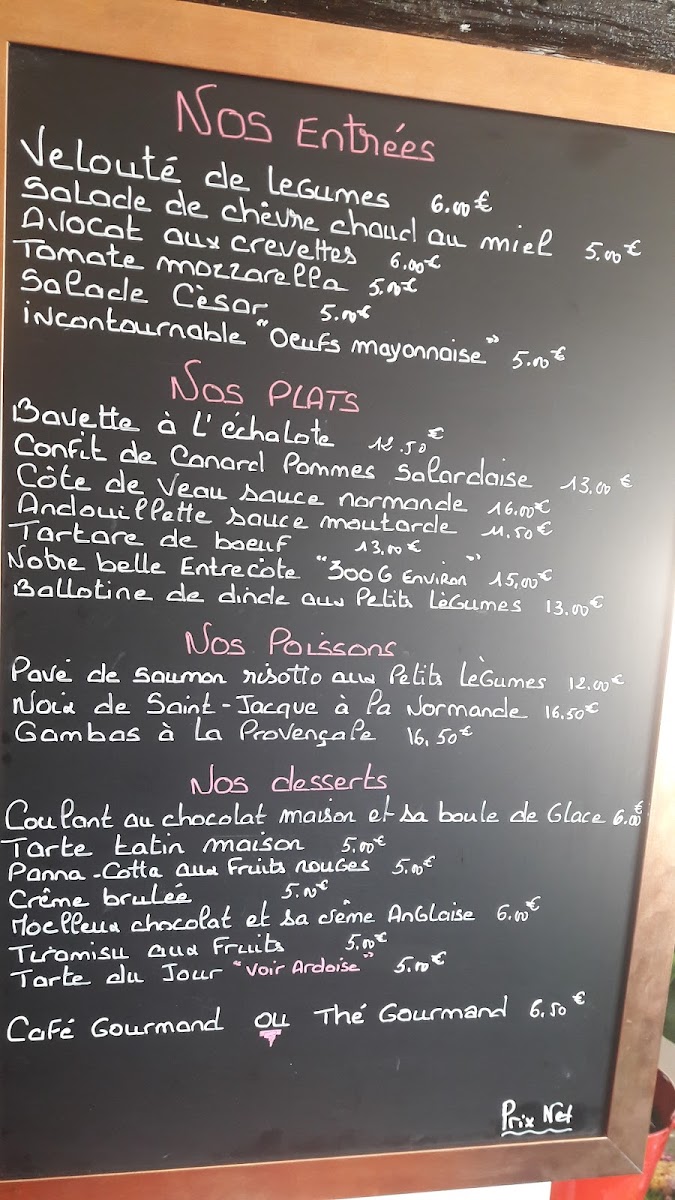 Nos Entrées
Velouté de legumes 6.00€
Salade de chêvre chaud au miel 5.00€
Avocat aux crevettes 6.00€
Tomate mozzarella 5.00€
Salade Cèsar 5.00€
incontournable "Oeufs mayonnaise" 5.00€
Nos PLATS
Bavette à L'échalote 12.50€
Confit de Canard Pommes Salardaise 13,00€
Côte de Veau sauce normande 16.00€
Andouillette sauce moutarde 11.50€
Tartare de boeuf 13,00€
Notre belle Entrecôte "300G Environ" 15,00€
Ballotine de dinde aux Petits LèGumes 13.00€
Nos Poissons
Pavé de saumon risotto aux Petits LèGumes 12.00€
Noix de Saint-Jacque à la Normande 16.50€
Gambas à La Provençale 16,50€
Nos desserts
Coulant au chocolat maison et sa boule de Glace 6.00€
Tarte tatin maison 5.00€
Panna-Cotta aux Fruits rouges 5,00€
Crême brulée 5.00€
Moelleux chocolat et sa crème AnGlaise 6.00€
Tiramisu aux Fruits 5.00€
Tarte du Jour "Voir Ardoise" 5.00€
CaFé Gourmand ou Thé Gourmand 6.50€
Prix Net